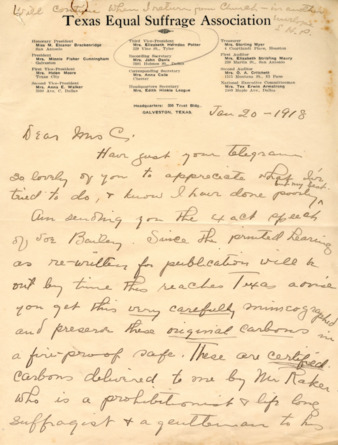 Will continue when I return from Church — in another
envelope
E.H.P.
Texas Equal Suffrage Association
Honorary President
Miss M. Eleanor Brackenridge
San Antonio
President
Mrs. Minnie Fisher Cunningham
Galveston
First Vice-President
Mrs. Helen Moore
Texas City
Second Vice-President
Mrs. Anna E. Walker
Third Vice-President
Mrs. Elizabeth Herndon Potter
Recording Secretary
Mrs. John Davis
Corresponding Secretary
Mrs. Anna Cade
Headquarters Secretary
Mrs. Edith Hinkle League
Treasurer
Mrs. Sterling Myer
First Auditor
Mrs. Elizabeth Stribling Maury
Second Auditor
Mrs. G. A. Critchett
National Executive Committeeman
Mrs. Tex Erwin Armstrong
Headquarters: Trust Bldg.
GALVESTON, TEXAS.
Jan 20 - 1918
Dear Mrs C;
Have just your telegram
so lovely of you to appreciate what I've
tried to do, & know I have done poorly
but my best
Am sending you the exact speech
of Joe Bailey. Since the printed hearing
as re-written for publication will be
out by time this reaches Texas advise
you get this very carefully mimeographed
and preserve these original carbons in
a fire-proof safe. These are certified
carbons delivered to me by Mr Raker
who is a prohibitionist & life long
suffragist & a gentleman to his